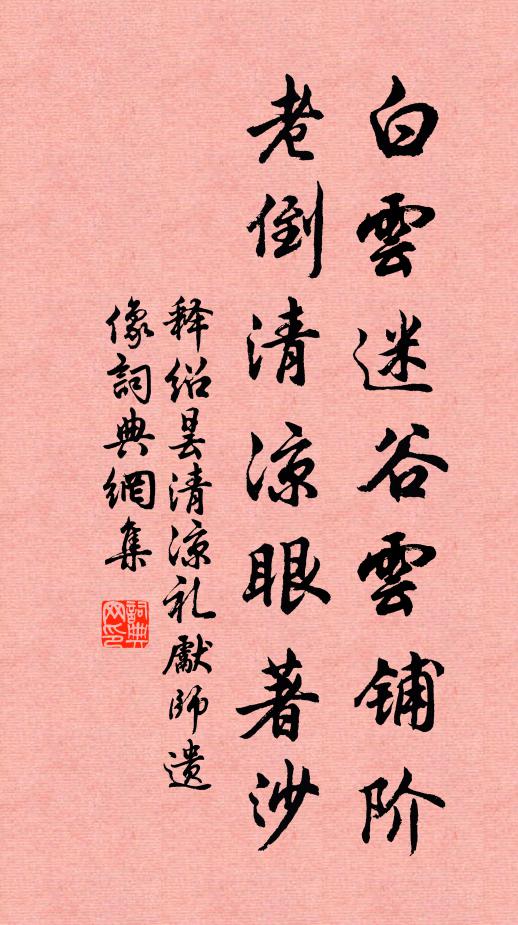 白雲迷谷雲铺阶
老倒清凉眼著沙
释绍昙清凉礼獻师遗
像詞典網集
詞典网印